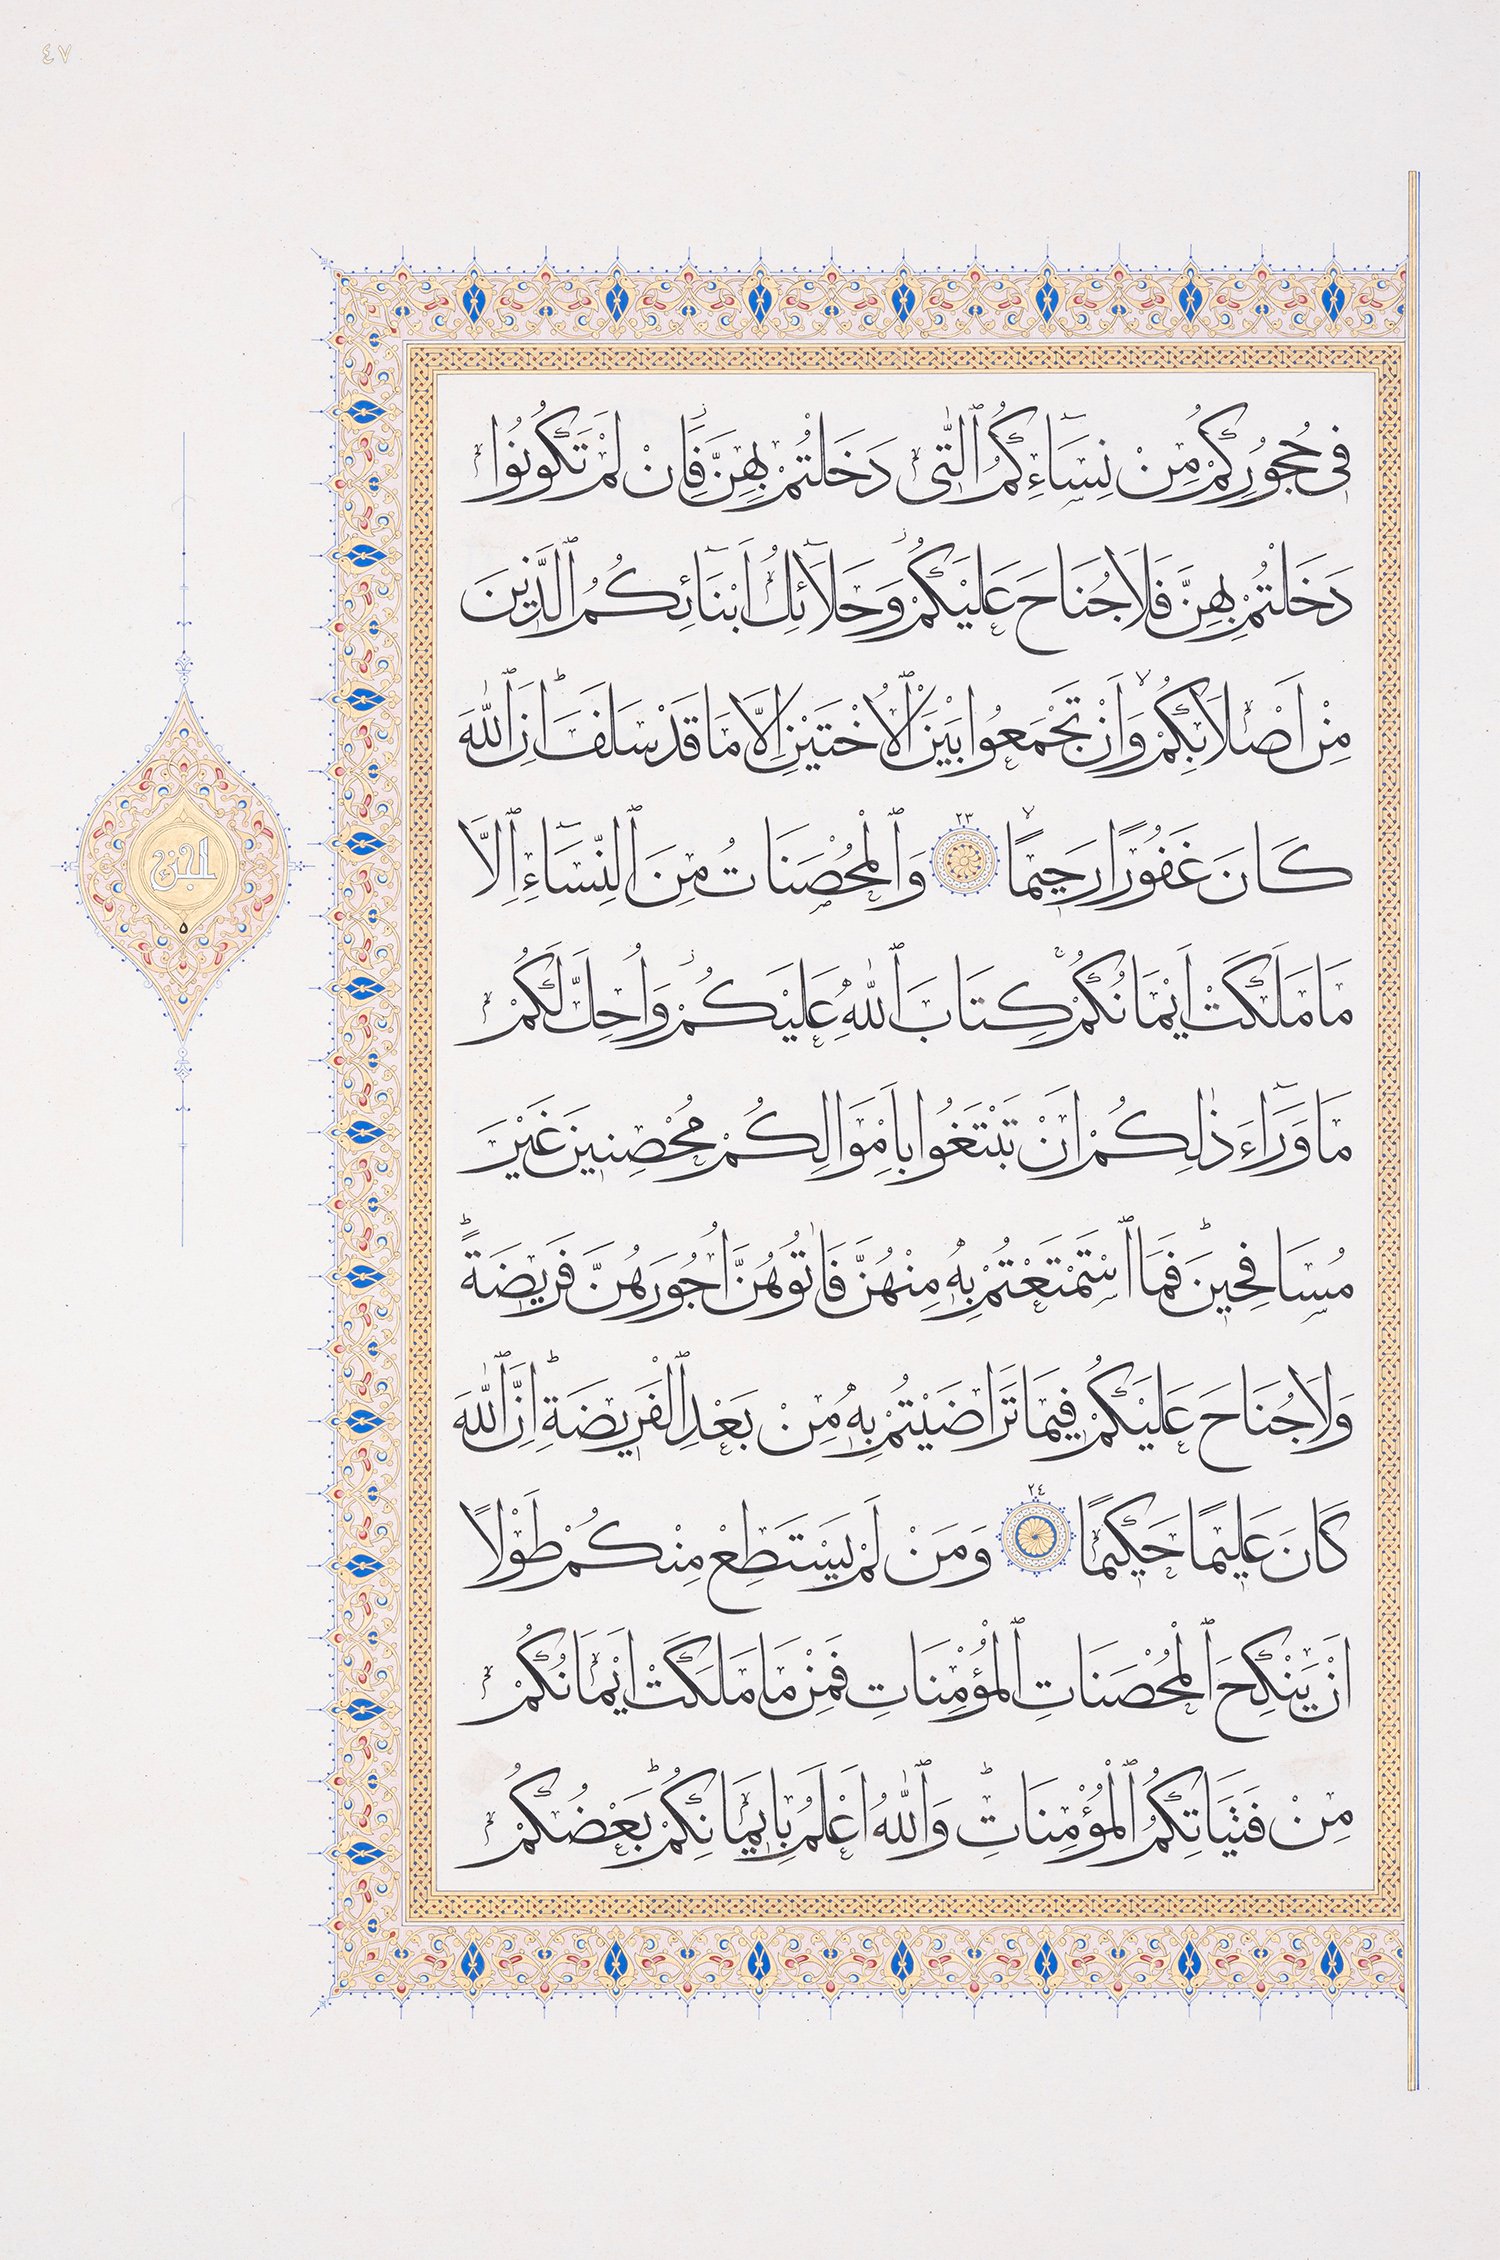 ٤٧
فِى حُجُورِكُمْ مِنْ نِسَٓاءِكُمُ ٱلّٰتِى دَخَلْتُمْ بِهِنَّ فَاِنْ لَمْ تَكُونُوا
دَخَلْتُمْ بِهِنَّ فَلَا جُنَاحَ عَلَيْكُمْ وَحَلَٓائِلُ اَبْنَٓائِكُمُ ٱلَّذِينَ
مِنْ اَصْلَابِكُمْ وَاَنْ تَجْمَعُوا بَيْنَ ٱلْاُخْتَيْنِ اِلَّا مَا قَدْ سَلَفَ اِنَّ ٱللّٰهَ
كَانَ غَفُورًا رَحِيمًا ٢٣ وَٱلْمُحْصَنَاتُ مِنَ ٱلنِّسَٓاءِ اِلَّا
مَا مَلَكَتْ اَيْمَانُكُمْ كِتَابَ ٱللّٰهِ عَلَيْكُمْ وَاُحِلَّ لَكُمْ
مَا وَرَٓاءَ ذٰلِكُمْ اَنْ تَبْتَغُوا بِاَمْوَالِكُمْ مُحْصِنِينَ غَيْرَ
مُسَافِحِينَ فَمَا ٱسْتَمْتَعْتُمْ بِهِ مِنْهُنَّ فَاٰتُوهُنَّ اُجُورَهُنَّ فَرِيضَةً
وَلَا جُنَاحَ عَلَيْكُمْ فِيمَا تَرَاضَيْتُمْ بِهِ مِنْ بَعْدِ ٱلْفَرِيضَةِ اِنَّ ٱللّٰهَ
كَانَ عَلِيمًا حَكِيمًا ٢٤ وَمَنْ لَمْ يَسْتَطِعْ مِنْكُمْ طَوْلًا
اَنْ يَنْكِحَ ٱلْمُحْصَنَاتِ ٱلْمُؤْمِنَاتِ فَمِنْ مَا مَلَكَتْ اَيْمَانُكُمْ
مِنْ فَتَيَاتِكُمُ ٱلْمُؤْمِنَاتِ وَٱللّٰهُ اَعْلَمُ بِاِيمَانِكُمْ بَعْضُكُمْ
الجزء
٥